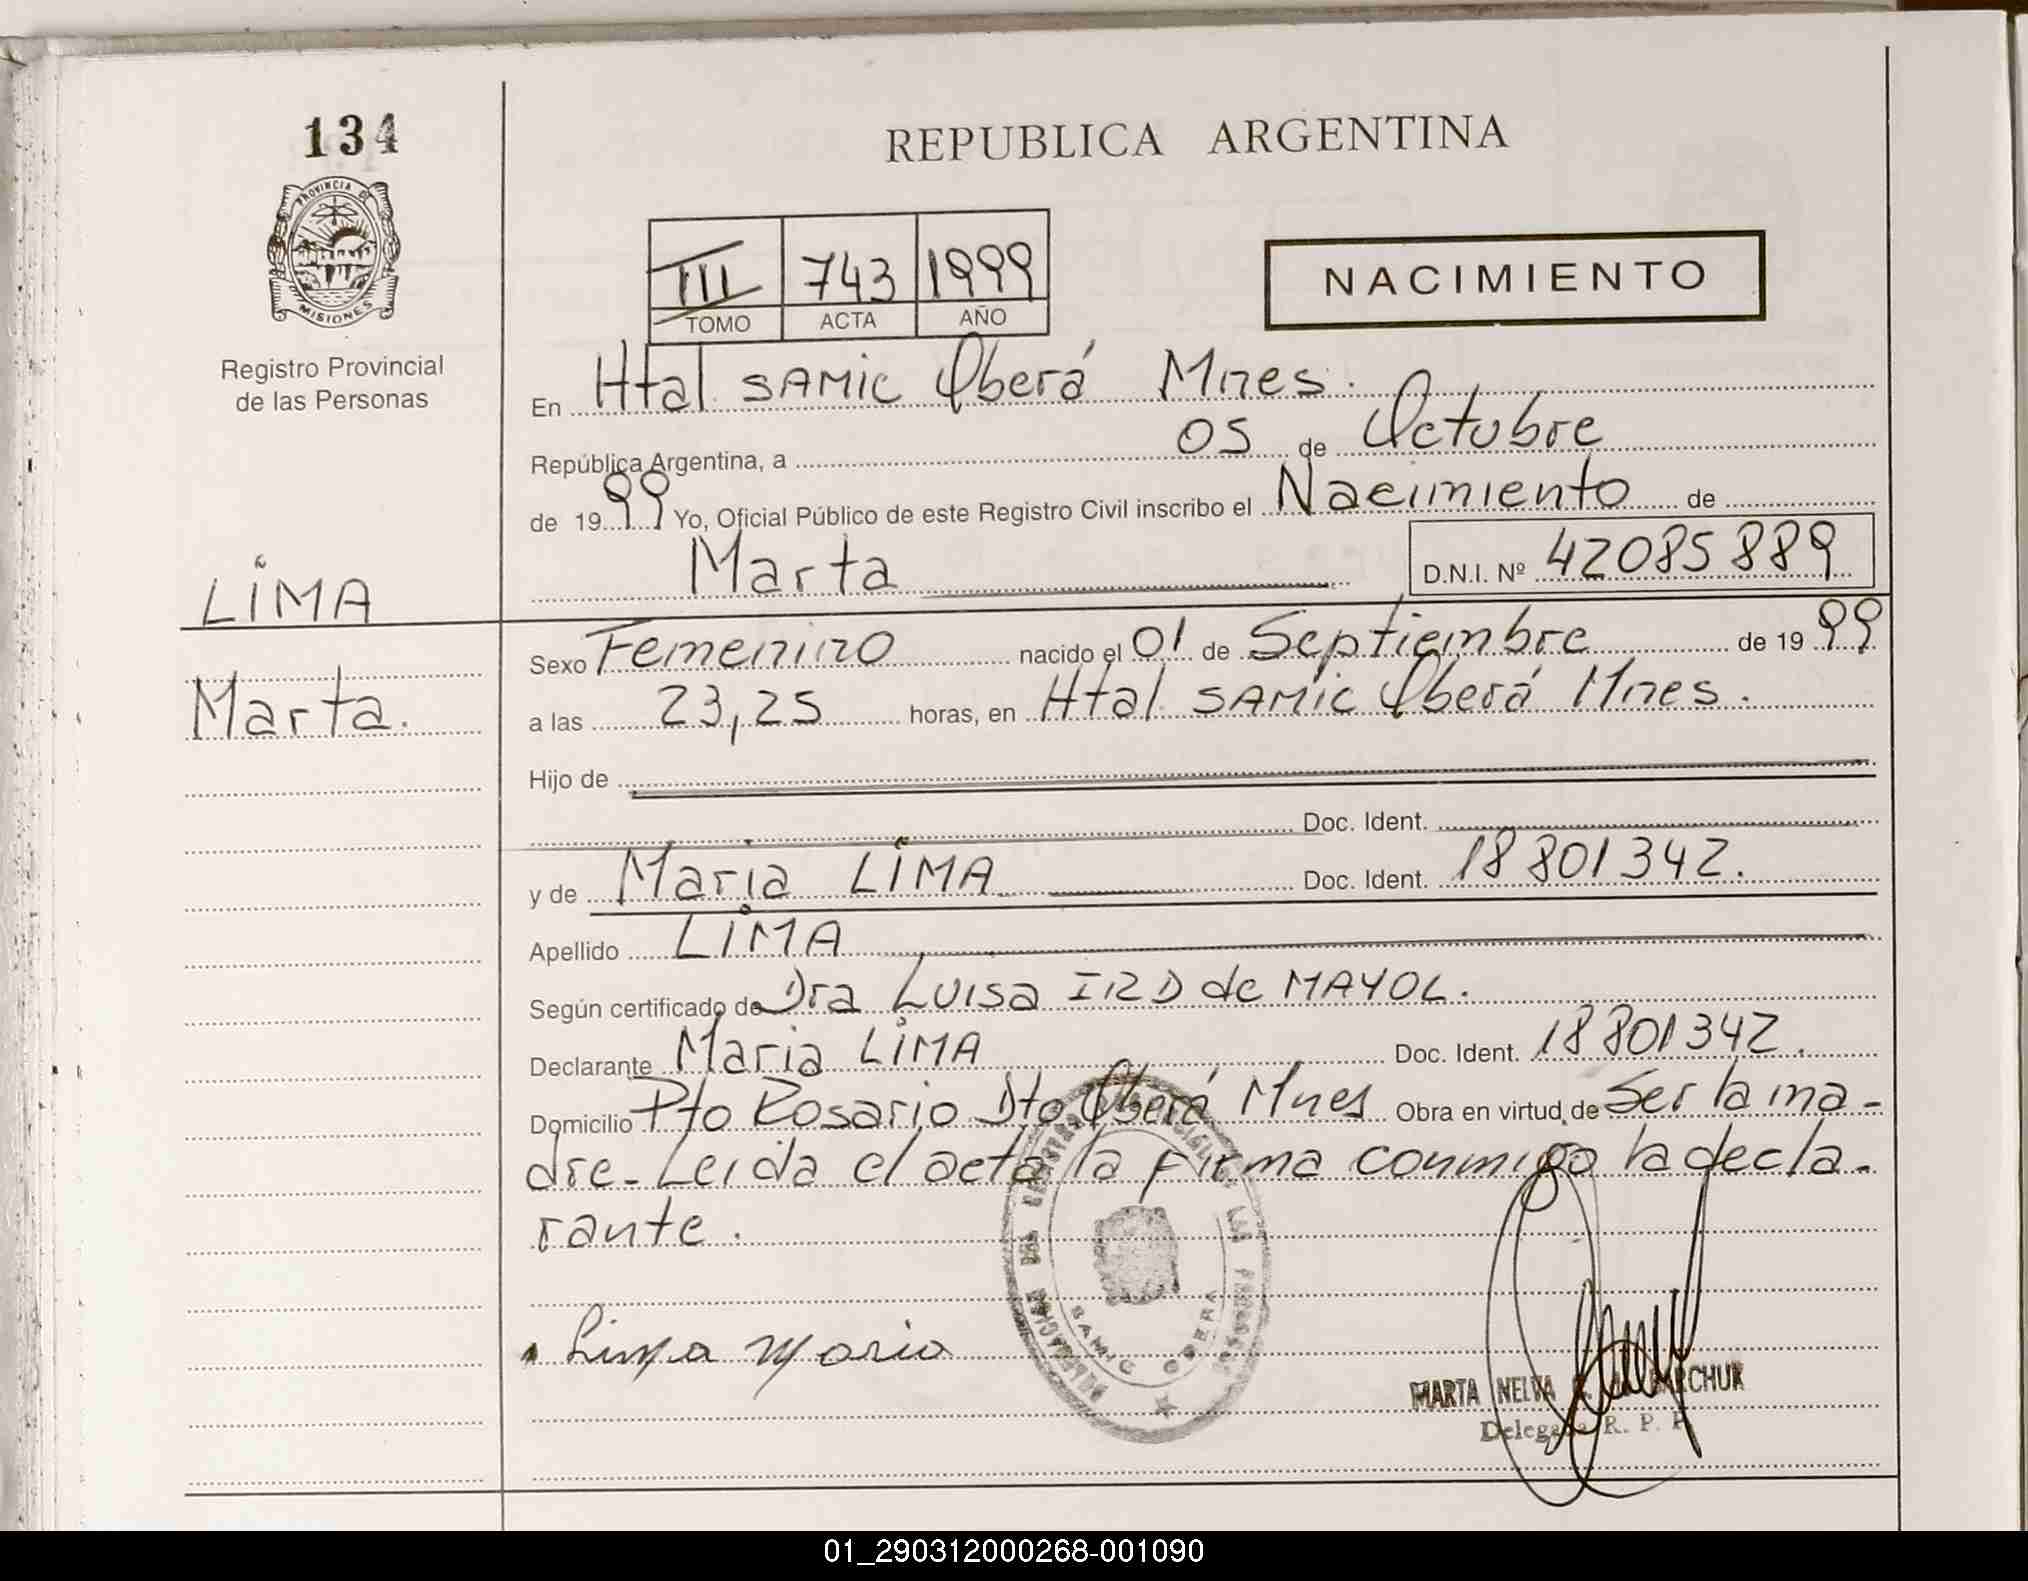 134
REPUBLICA ARGENTINA
PROVINCIA DE
MISIONES
Registro Provincial
de las Personas
III 743 1999
TOMO ACTA AÑO
NACIMIENTO
En Htal SAMIC Oberá Mnes.
República Argentina, a 05 de Octubre
de 1999 Yo, Oficial Público de este Registro Civil inscribo el Nacimiento de
Marta D.N.I. Nº 42085889
LIMA
Marta.
Sexo Femenino nacido el 01 de Septiembre de 1999
a las 23,25 horas, en Htal SAMIC Oberá Mnes.
Hijo de
Doc. Ident.
y de Maria LIMA Doc. Ident. 18801342.
Apellido LIMA
Según certificado de Dra Luisa IRD de MAYOL.
Declarante Maria LIMA Doc. Ident. 18801342.
Domicilio Pto Rosario Dto Oberá Mnes Obra en virtud de Ser la ma-
dre. Leida el acta la firma conmigo la decla-
rante.
Lima Maria
SAMIC OBERA
MARTA NELVA
Delegada R. P. P.
01_290312000268-001090